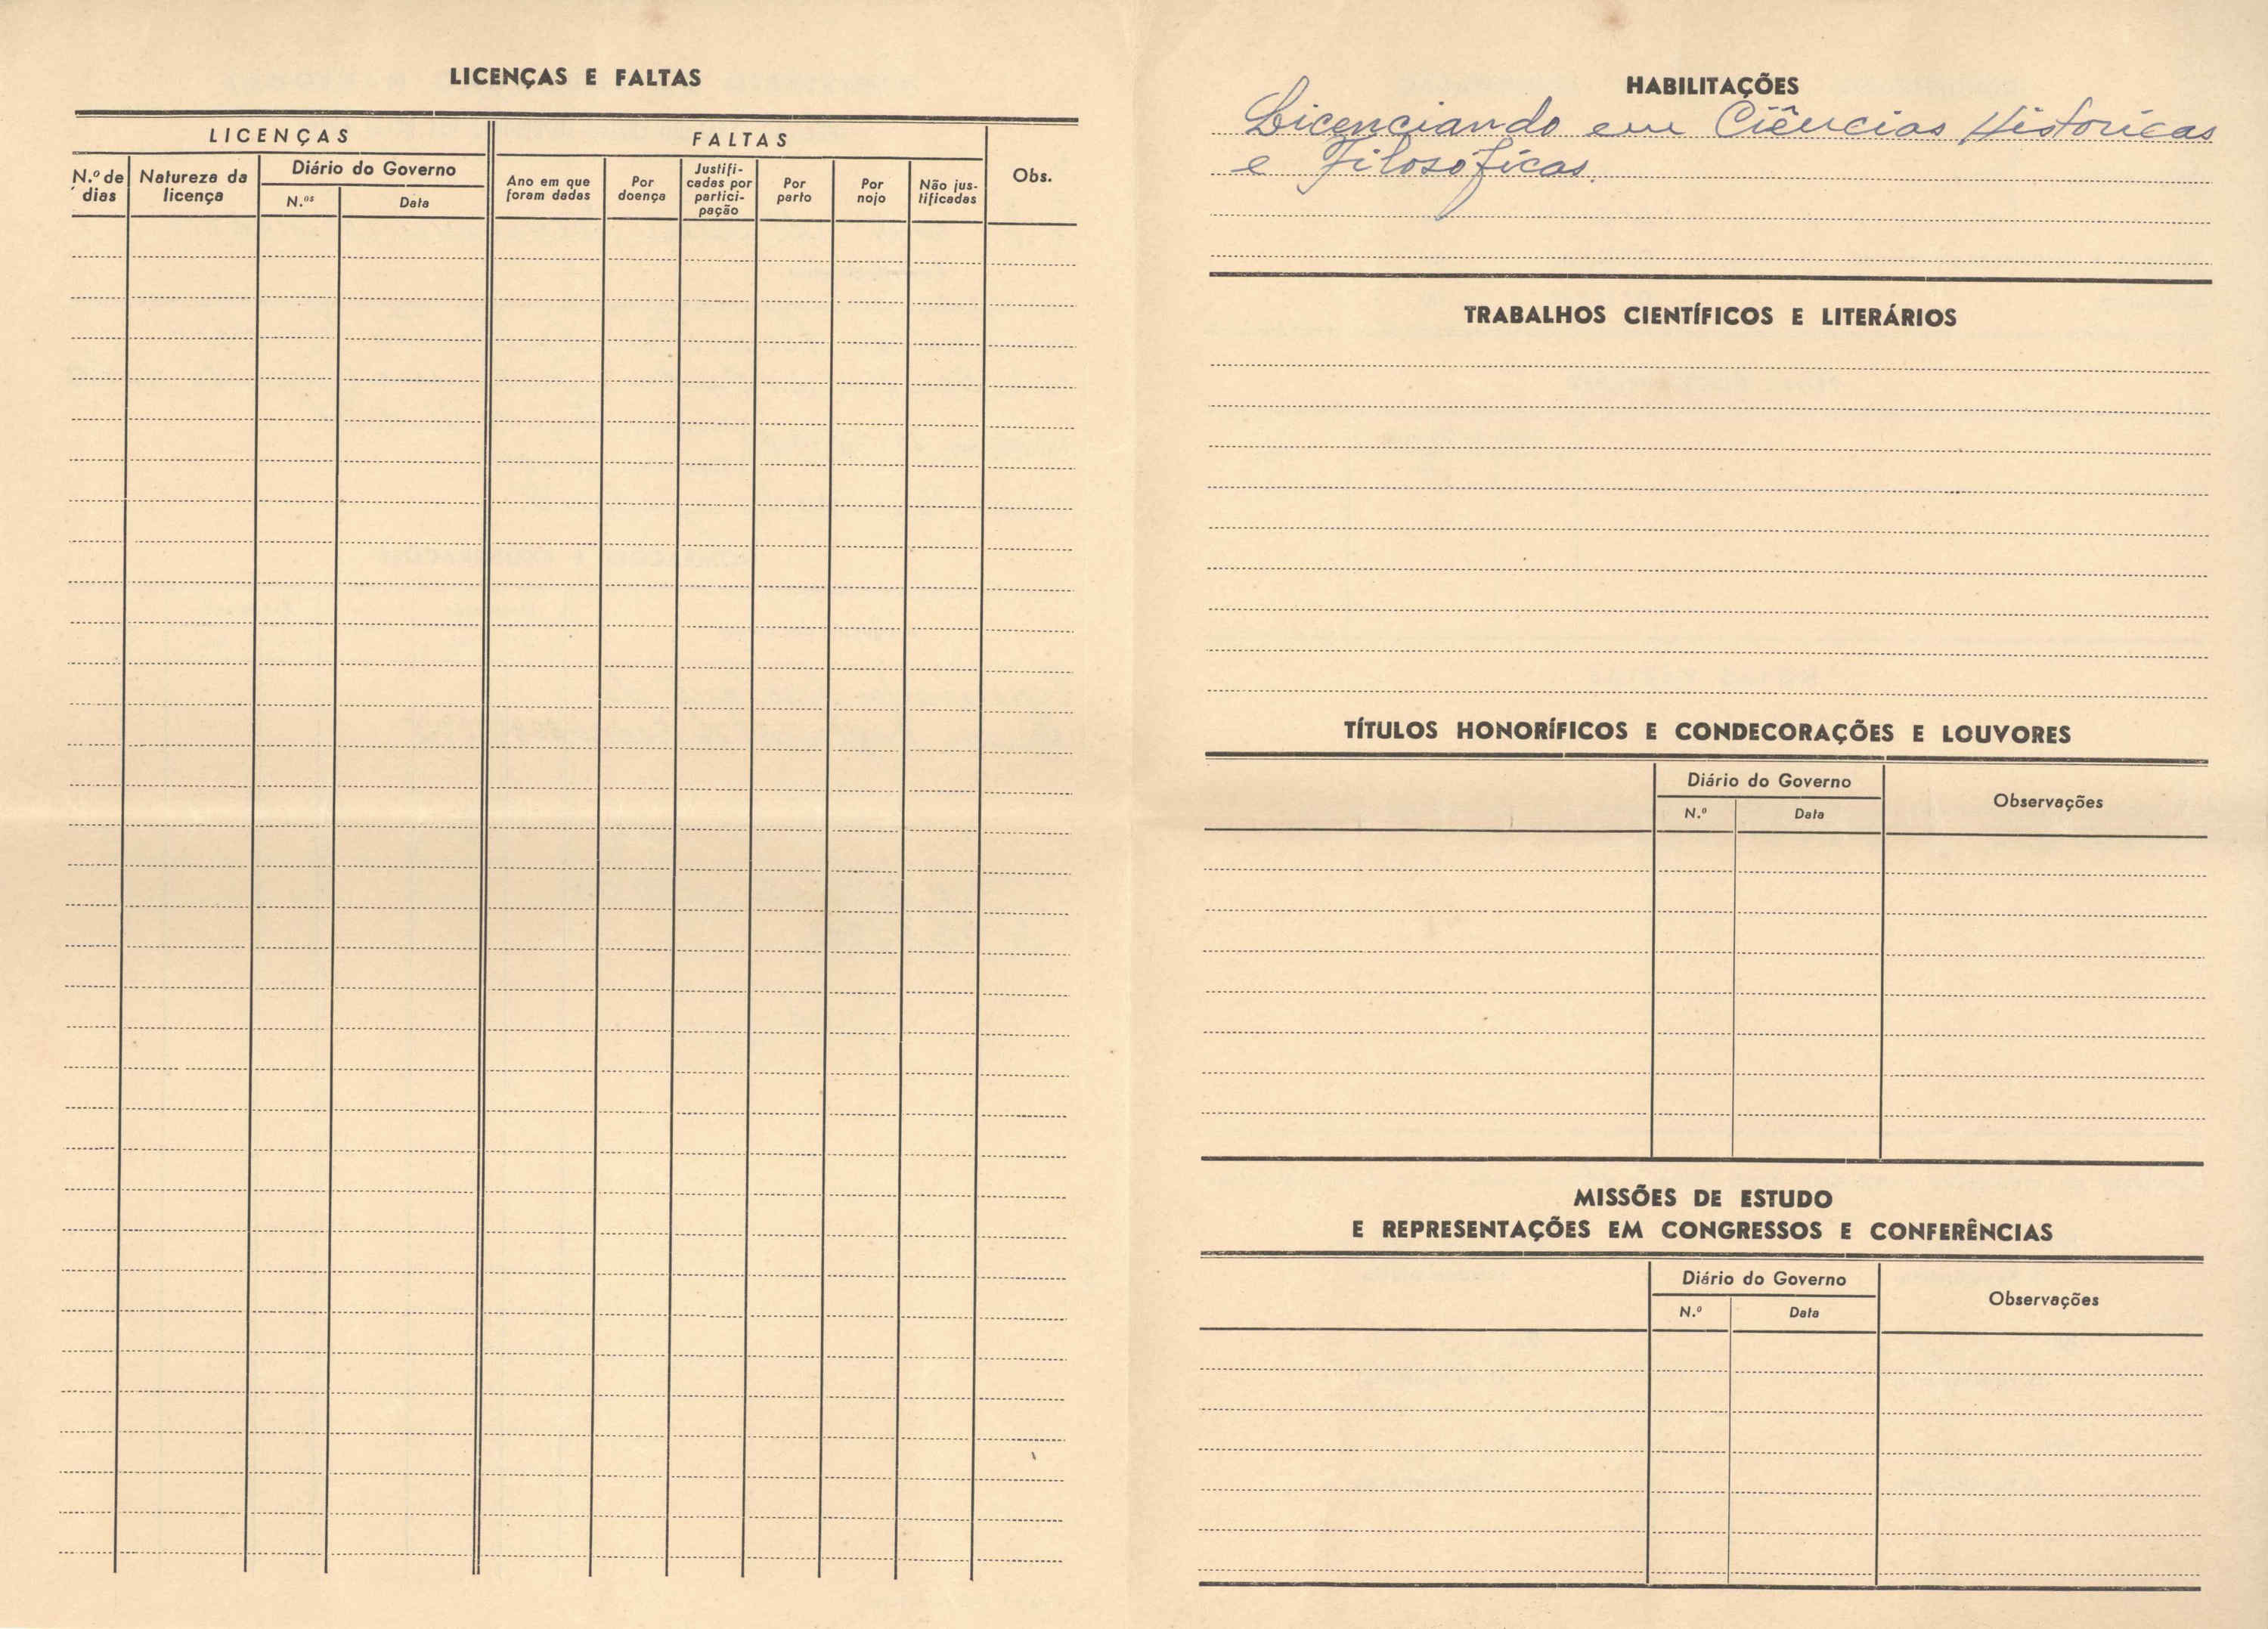 LICENÇAS E FALTAS
LICENÇAS
FALTAS
Obs.
N.º de
dias
Natureza da
licença
Diário do Governo
N.os
Data
Ano em que
foram dadas
Por
doença
Justifi-
cadas por
partici-
pação
Por
parto
Por
nojo
Não jus-
tificadas
HABILITAÇÕES
Licenciando em Ciências Historicas
e Filosóficas.
TRABALHOS CIENTÍFICOS E LITERÁRIOS
TÍTULOS HONORÍFICOS E CONDECORAÇÕES E LOUVORES
Diário do Governo
N.º
Data
Observações
MISSÕES DE ESTUDO
E REPRESENTAÇÕES EM CONGRESSOS E CONFERÊNCIAS
Diário do Governo
N.º
Data
Observações